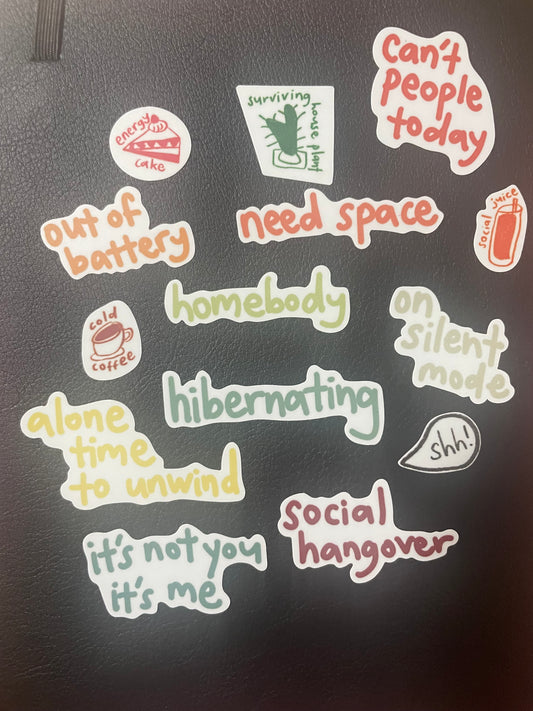 can't
people
today
surviving
house plant
energy
cake
social juice
out of
battery
need space
homebody
on
silent
mode
cold
coffee
hibernating
alone
time
to unwind
shh!
social
hangover
it's not you
it's me